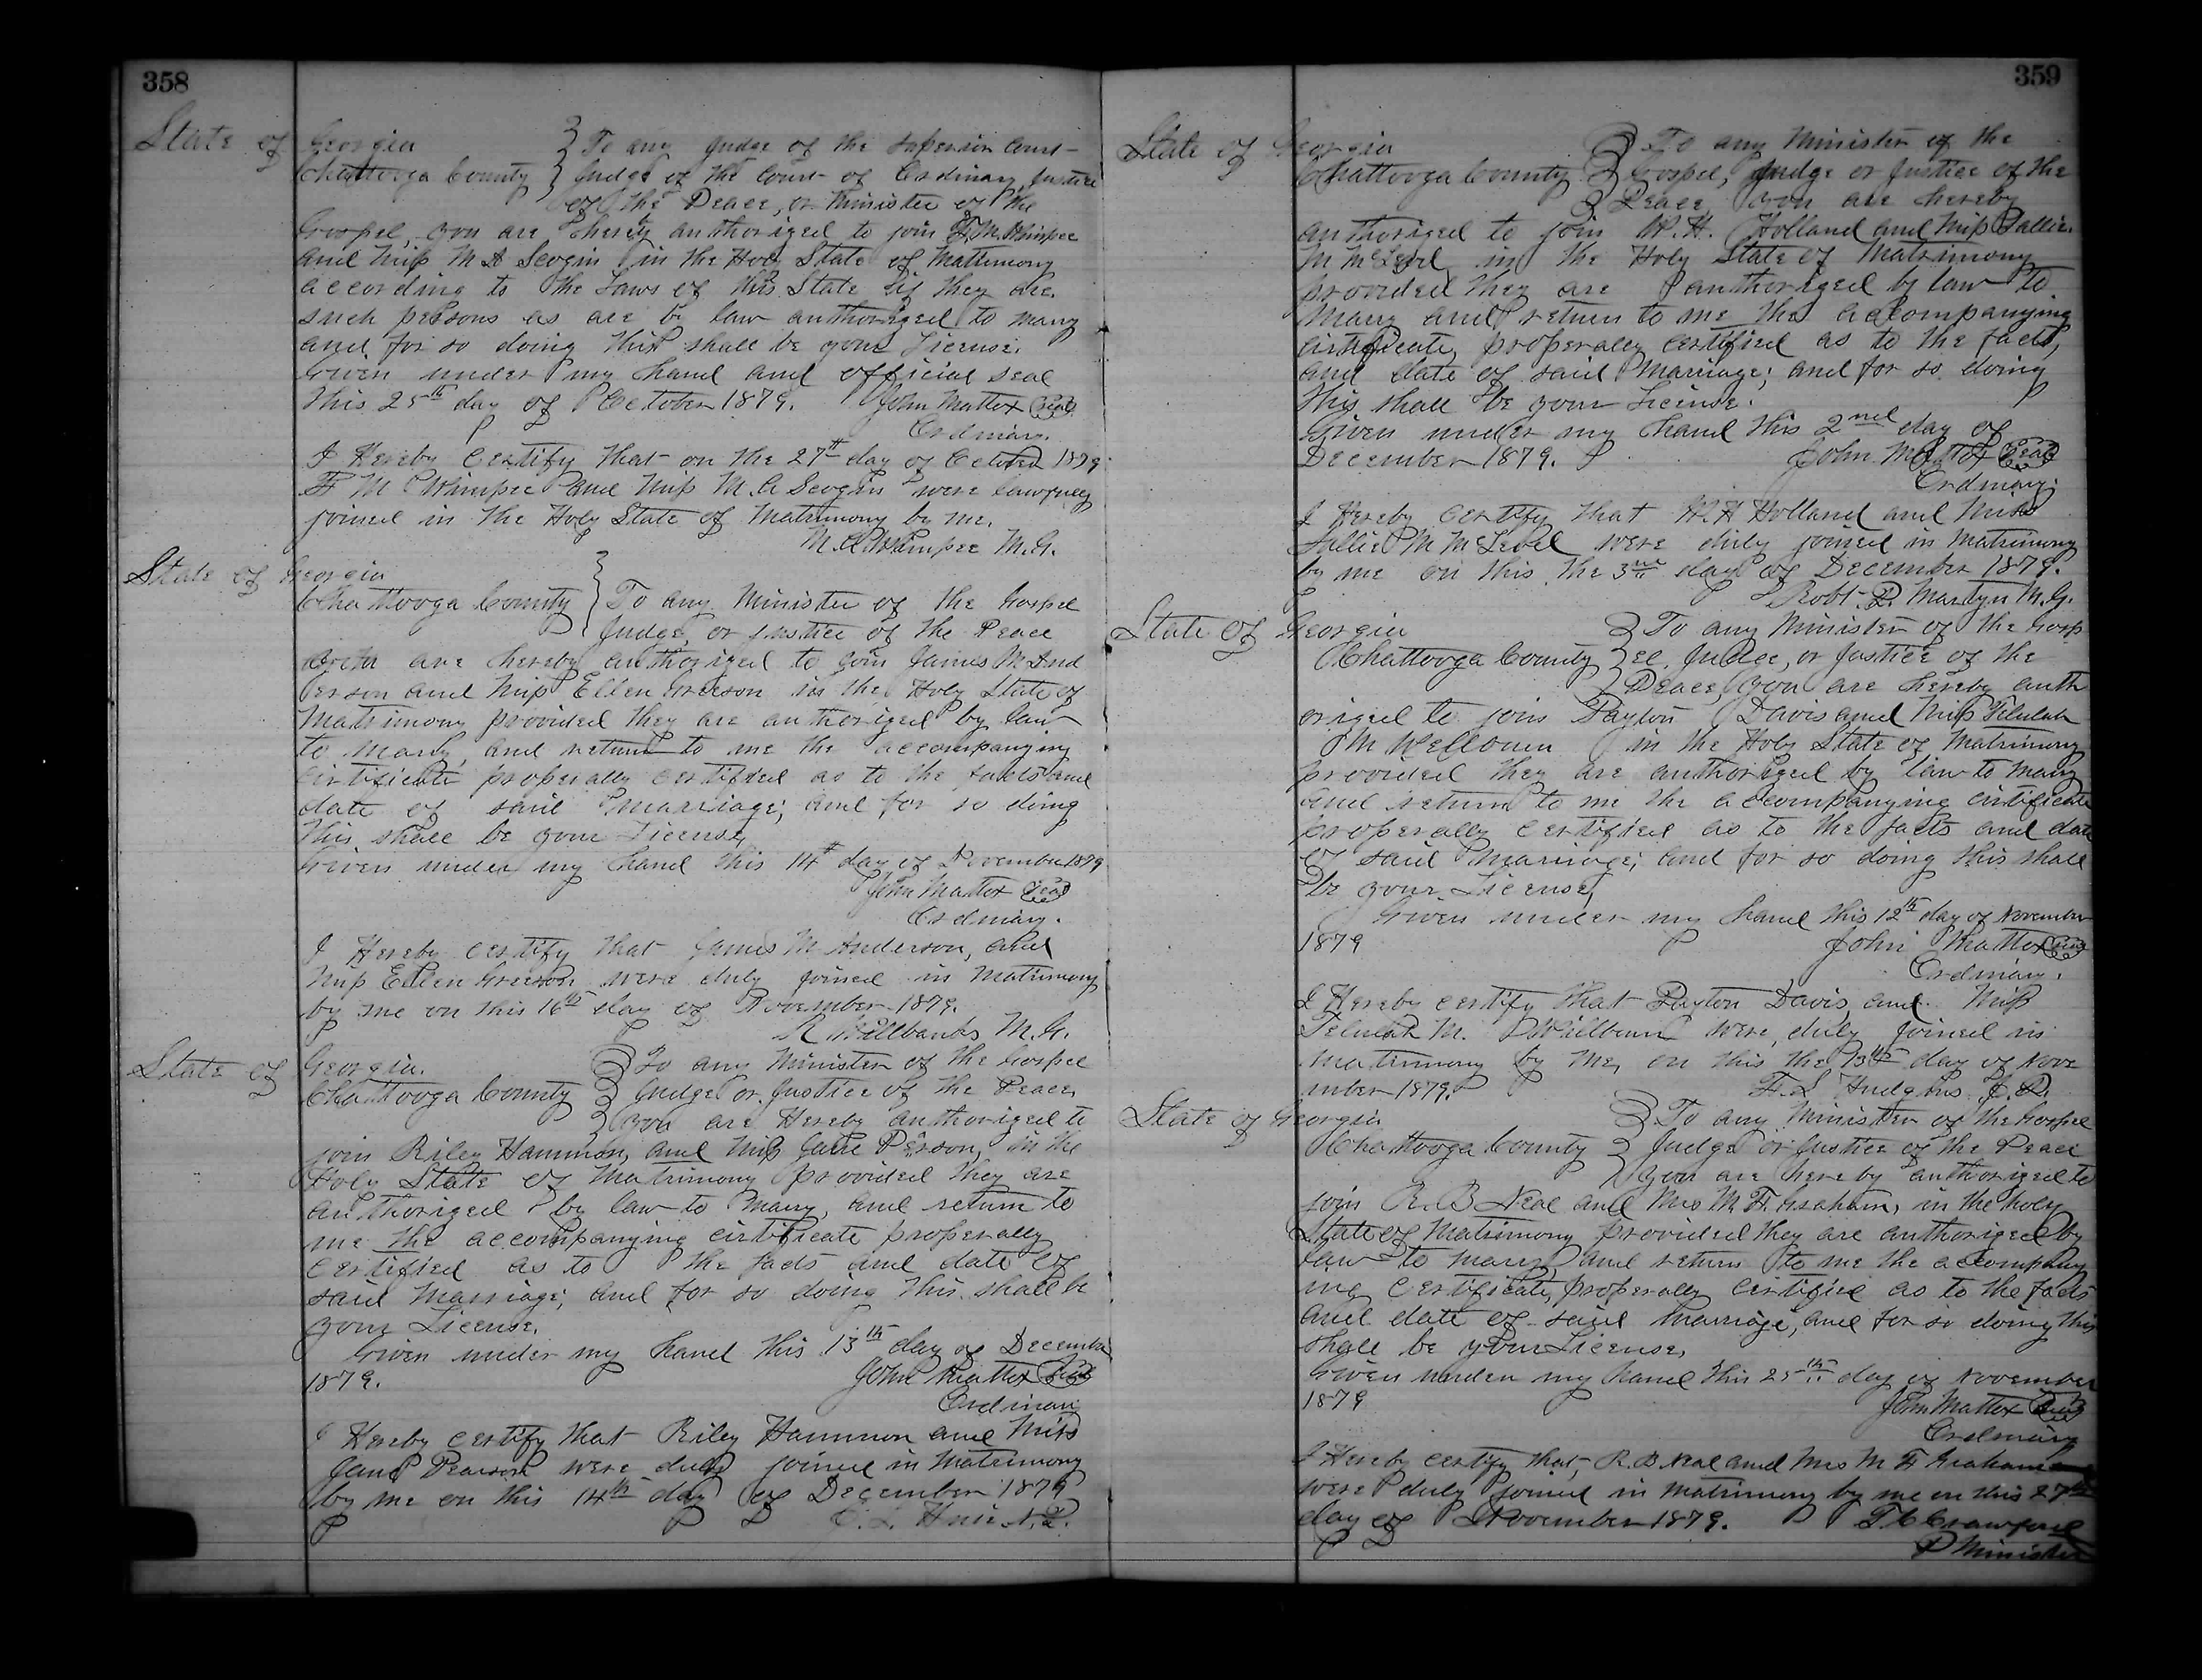 358
State of Georgia } To any Judge of the Superior Court
Chattooga County } Judge of the Court of Ordinary, Justice
of the Peace, or Minister of the
Gospel, you are hereby authorized to join F. M. Whimpee
and Miss M A Scogin in the Holy State of Matrimony
according to the Laws of this State if they are
such persons as are by law authorized to marry
and for so doing this shall be your License.
Given under my hand and official seal
this 25th day of October 1879. John Mattox Seal
Ordinary.
I Hereby Certify that on the 27th day of October 1879
F M Whimpee and Miss M. A Scogin were lawfully
joined in the Holy State of Matrimony by me.
M. A Whimpee M. G.
State of Georgia
Chattooga County } To any Minister of the Gospel
Judge, or Justice of the Peace
are hereby authorized to join James M And
erson and Miss Ellen Greeson in the Holy State of
Matrimony provided they are authorized by law
to marry, and return to me the accompanying
Certificate properally certified as to the facts and
date of said marriage; and for so doing
this shall be your License,
Given under my hand this 14th day of November 1879
John Mattox Seal
Ordinary.
I Hereby certify that James M Anderson, and
Miss Ellen Greeson were duly joined in Matrimony
by me on this 16th day of November 1879.
R Millbanks M. G.
State of Georgia. } To any Minister of the Gospel
Chattooga County } Judge or Justice of the Peace
you are Hereby authorized to
join Riley Hammon, and Miss Jane Person, in the
Holy State of Matrimony provided they are
authorized by law to marry, and return to
me the accompanying certificate properally
certified as to the facts and date of
said Marriage; and for so doing this shall be
your License.
Given under my hand this 13th day of December
1879. John Mattox Seal
Ordinary
I Hereby certify that Riley Hammon and Miss
Jane Pearson were duly joined in Matrimony
by me on this 14th day of December 1879
N. P.
359
State of Georgia } To any Minister of the
Chattooga County } Gospel, Judge or Justice of the
Peace, you are hereby
authorized to join W. H. Holland and Miss Sallie
M McLeod in the Holy State of Matrimony
provided they are authorized by law to
marry and return to me the accompanying
Certificate, properally certified as to the facts,
and date of said Marriage; and for so doing
this shall be your License.
Given under my hand this 2nd day of
December 1879. John Mattox Seal
Ordinary.
I Hereby certify that W. H Holland and Miss
Sallie M McLeod were duly joined in matrimony
by me on this the 3rd day of December 1879.
Robt. P. Martyn M. G.
State of Georgia } To any Minister of the Gosp
Chattooga County } el, Judge, or Justice of the
Peace, you are hereby auth
orized to join Payton Davis and Miss Telulah
M Wellborn in the Holy State of Matrimony
provided they are authorized by law to marry
and return to me the accompanying certificate
properally certified as to the facts and date
of said Marriage; and for so doing this shall
be your License,
Given under my hand this 12th day of November
1879 John Mattox Seal
Ordinary.
I Hereby certify that Payton Davis, and Miss
Telulah M. Wellborn were duly joined in
matrimony by me, on this the 13th day of Nove
mber 1879. F. L Hudgins J. P.
State of Georgia } To any Minister of the Gospel
Chattooga County } Judge or Justice of the Peace
you are hereby authorized to
join R. B Neal and Mrs M. F. Graham, in the holy
State of Matrimony provided they are authorized by
law to marry and return to me the accompany
ing certificate, properally certified as to the facts
and date of said Marriage, and for so doing this
shall be your License,
Given under my hand this 25th day of November
1879 John Mattox Seal
Ordinary
I Hereby certify that, R. B Neal and Mrs M F Graham
were duly joined in Matrimony by me on this 27th
day of November 1879. T. C Crawford
Minister